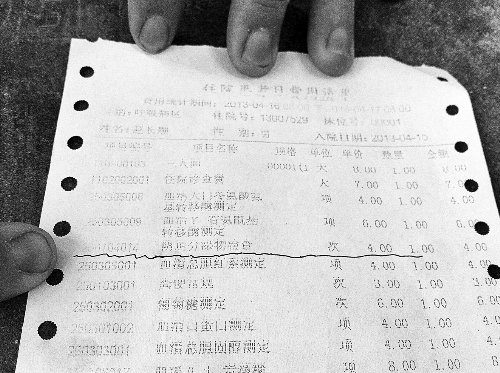 住院病人日费用清单
费用统计期间: 2013-04-16 00:00 2013-04-17 00:00
科别: 呼吸 住院号: 13007529 床位号: 0001
姓名: 赵长 性 别: 男 入院日期: 2013-04-10
项目编码 项目名称 规格 单位 单价 数量 金额
三人间 天 8.00 1.00 8.00
1102002001 住院诊查费 天 7.00 1.00 7.00
250305008 血清天门冬氨酸氨基转移酶测定 项 4.00 1.00 4.00
250305009 血清γ-谷氨酰基转移酶测定 项 6.00 1.00 6.00
阴道分泌物检查 次 4.00 1.00 4.00
250305001 血清总胆红素测定 项 4.00 1.00 4.00
250103001 粪便常规 次 3.00 1.00 3.00
250302001 葡萄糖测定 次 6.00 1.00 6.00
250301002 血清白蛋白测定 项 4.00 1.00 4.00
250303001 血清总胆固醇测定 项 4.00 1.00 4.
项 8.00 1.00